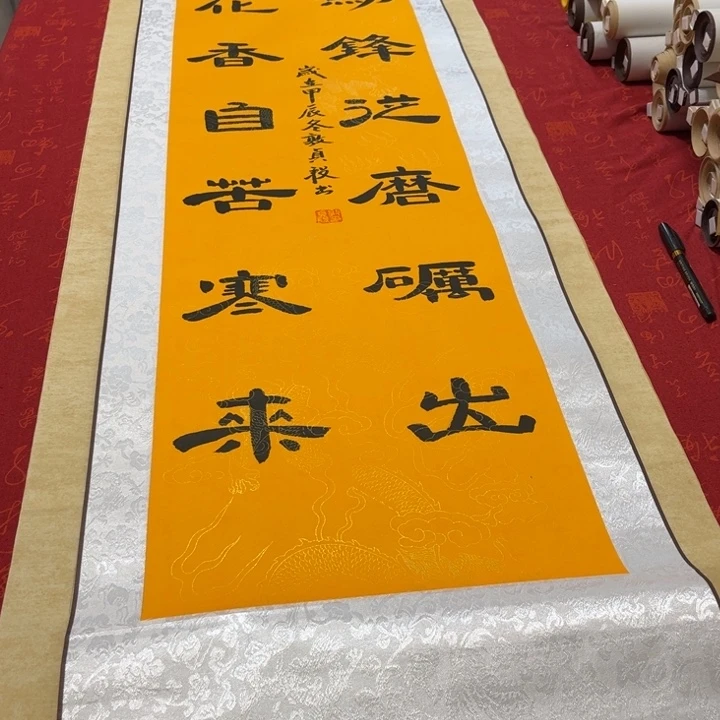 鋒從磨礪出
花香自苦寒來
歲在甲辰冬
書